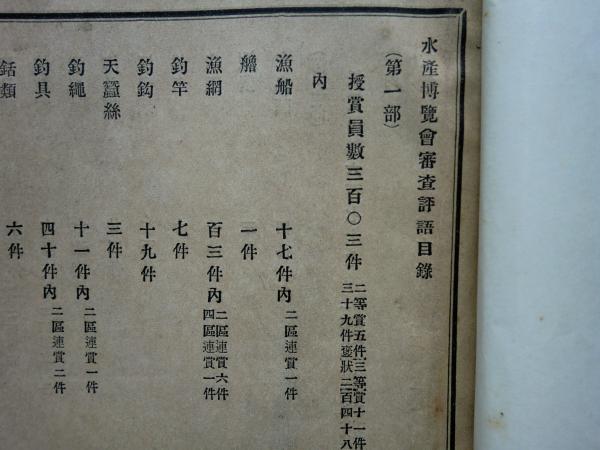 水產博覽會審查評語目錄
(第一部)
授賞員數三百〇三件
二等賞五件三等賞十一件
三十九件褒狀二百四十八
內
漁船 十七件內 二區連賞一件
艪 一件
漁網 百三件內 二區連賞六件
四區連賞一件
釣竿 七件
釣鈎 十九件
天蠶絲 三件
釣繩 十一件內 二區連賞一件
釣具 四十件內 二區連賞二件
銛類 六件